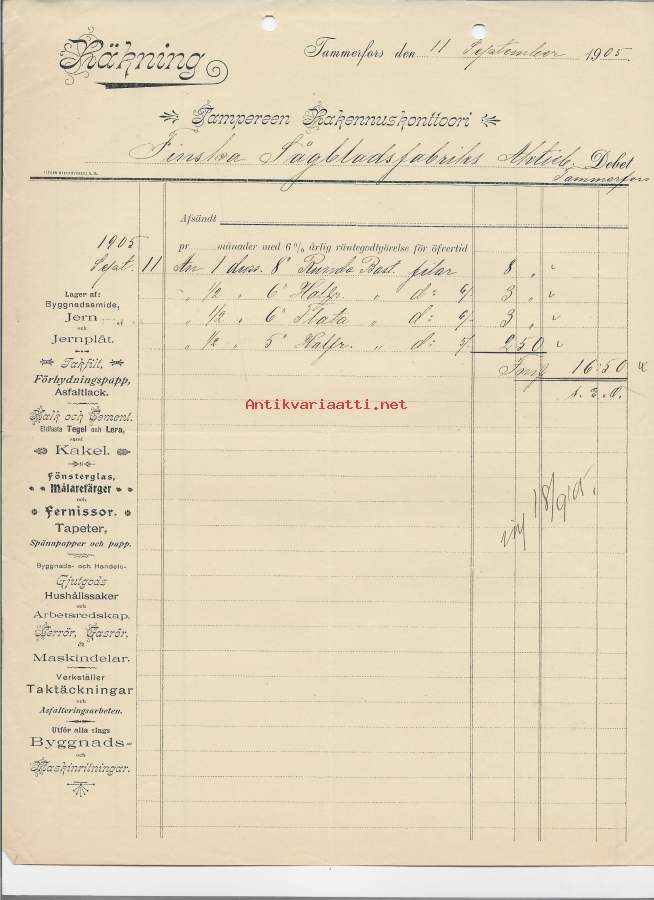 Räkning
Tammerfors den 11 September 1905.
Tampereen Rakennuskonttoori
Finska Sågbladsfabriks Aktieb. Debet
Tammerfors
Afsändt
1905 pr månader med 6% årlig räntegodtgörelse för öfvertid
Sept. 11 An 1 duss. 8" Runda Bast. filar 8 " "
" 1/2 " 6" Halfr. " d:o 6/- 3 " "
" 1/2 " 6" Flata " d:o 6/- 3 " "
" 1/2 " 5" Halfr. " d:o 5/- 2 50 "
Fmf 16:50
Lager af:
Byggnadssmide,
Jern
och
Jernplåt.
Takfilt,
Förhydningspapp,
Asfaltlack.
Kalk och Cement.
Eldfasta Tegel och Lera,
samt
Kakel.
Fönsterglas,
Målarefärger
och
Fernissor.
Tapeter,
Spännpapper och papp.
Byggnads- och Handels-
Gjutgods
Hushållssaker
och
Arbetsredskap.
Jernrör, Gasrör,
&
Maskindelar.
Verkställer
Taktäckningar
och
Asfalteringsarbeten.
Utför alla slags
Byggnads-
och
Maskinritningar.
18/9 05.
Antikvariaatti.net